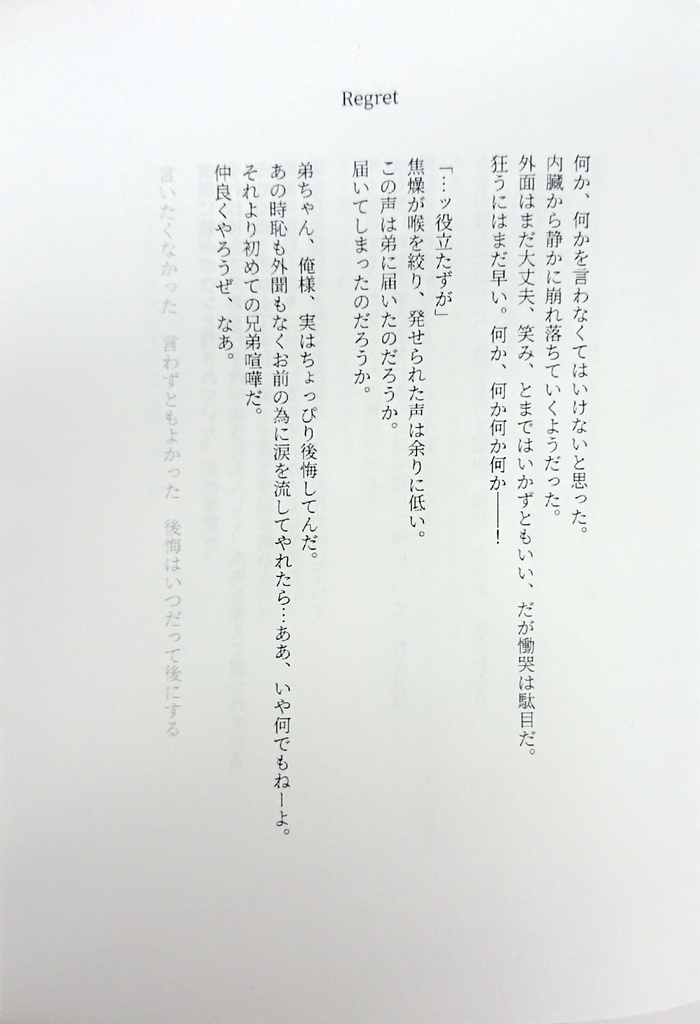 Regret
何か、何かを言わなくてはいけないと思った。
内臓から静かに崩れ落ちていくようだった。
外面はまだ大丈夫、笑み、とまではいかずともいい、だが慟哭は駄目だ。
狂うにはまだ早い。何か、何か何か何か――！
「…ッ役立たずが」
焦燥が喉を絞り、発せられた声は余りに低い。
この声は弟に届いたのだろうか。
届いてしまったのだろうか。
弟ちゃん、俺様、実はちょっぴり後悔してんだ。
あの時恥も外聞もなくお前の為に涙を流してやれたら…ああ、いや何でもねーよ。
それより初めての兄弟喧嘩だ。
仲良くやろうぜ、なあ。
言いたくなかった　言わずともよかった　後悔はいつだって後にする